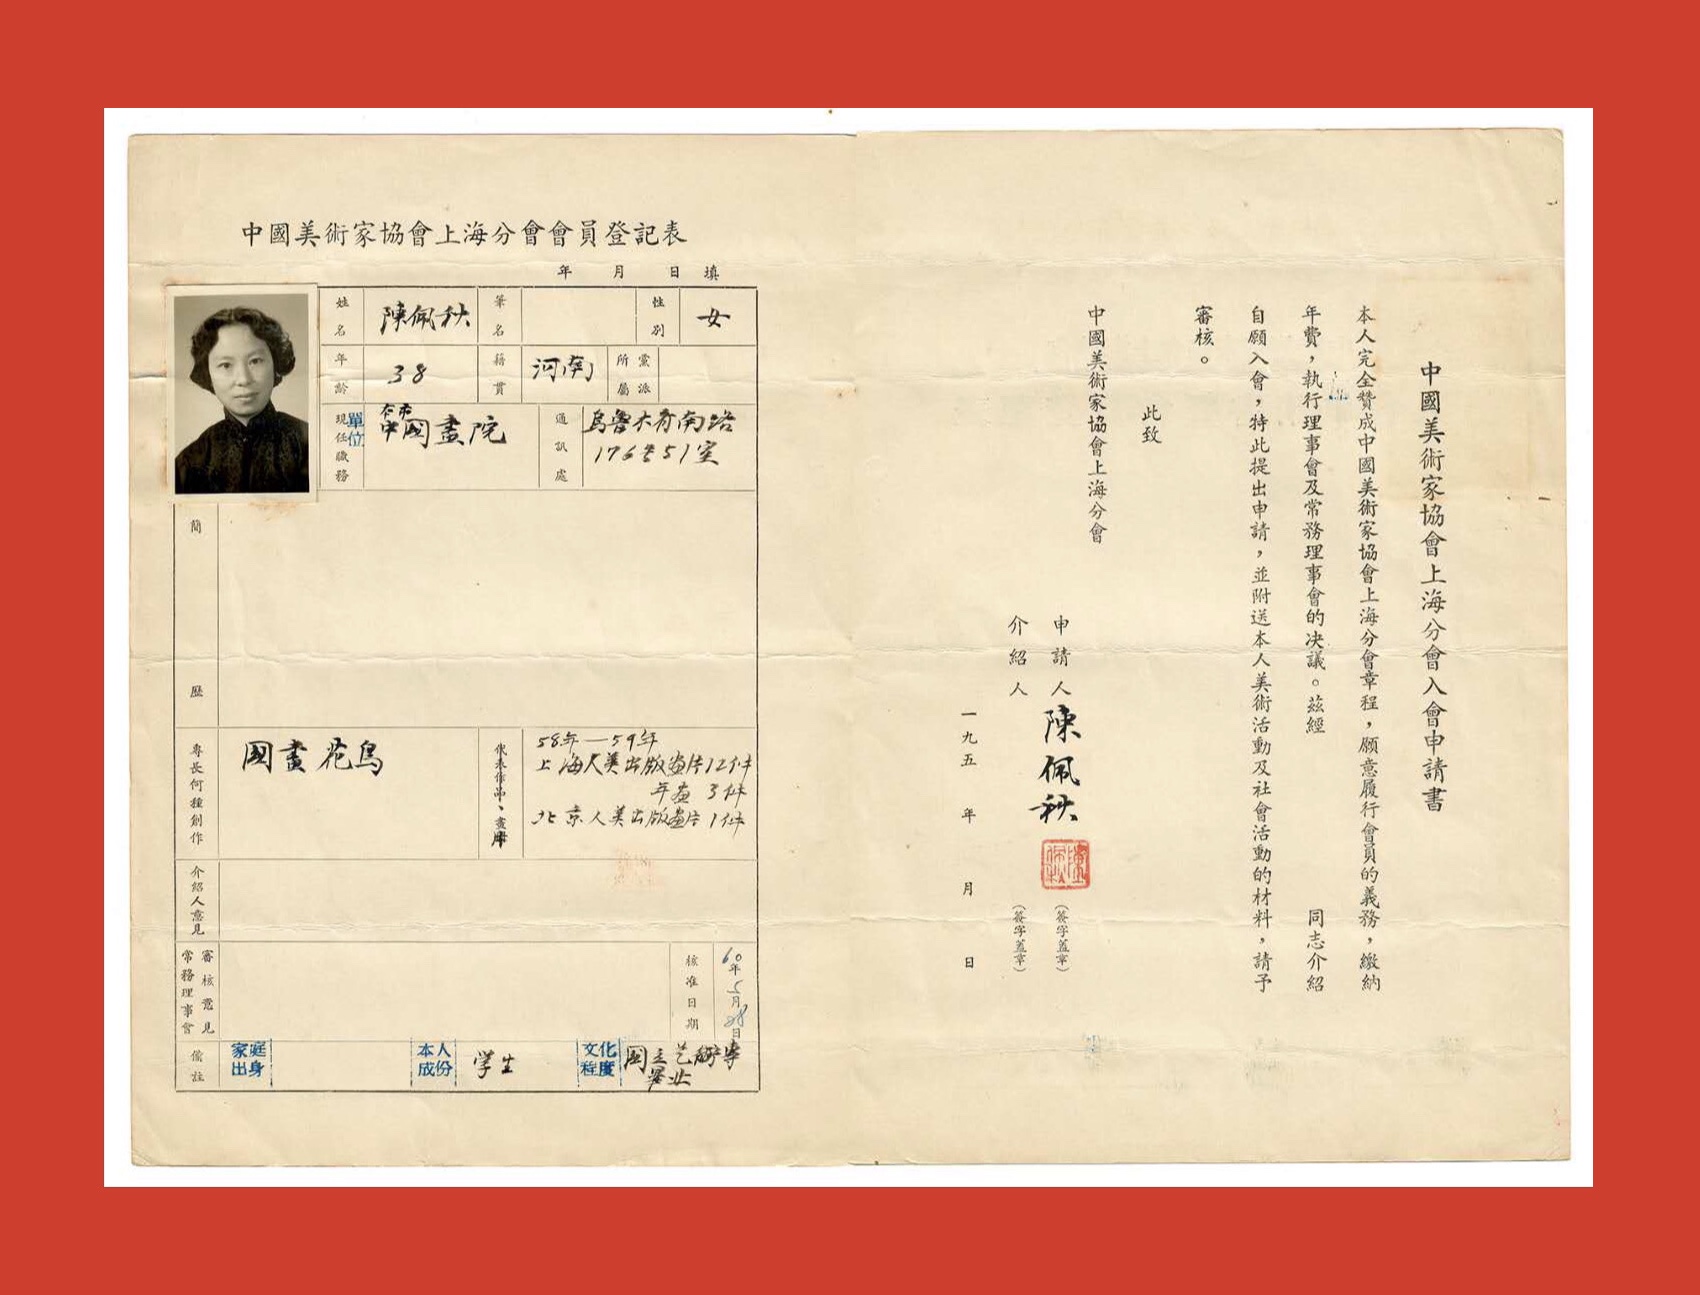 中國美術家協會上海分會會員登記表
年 月 日 填
姓名 陳佩秋 筆名 性別 女
年齡 38 籍貫 河南 所屬黨派
現任職務 單位 本市 中國畫院 通訊處 烏魯木齊南路
176号51室
簡歷
專長何種創作 國畫花鳥 代表作品、
58年—59年
上海人美出版画片12件
年画 3件
北京人美出版画片1件
介紹人意見
常務理事會審核意見 核准日期 60年5月28日
備註 家庭出身 本人成份 学生 文化程度 國立艺術專
畢业
中國美術家協會上海分會入會申請書
本人完全贊成中國美術家協會上海分會章程，願意履行會員的義務，繳納
年費，執行理事會及常務理事會的決議。茲經 同志介紹
自願入會，特此提出申請，並附送本人美術活動及社會活動的材料，請予
審核。
此致
中國美術家協會上海分會
申請人 陳佩秋 （簽字蓋章）
介紹人 （簽字蓋章）
一九五 年 月 日